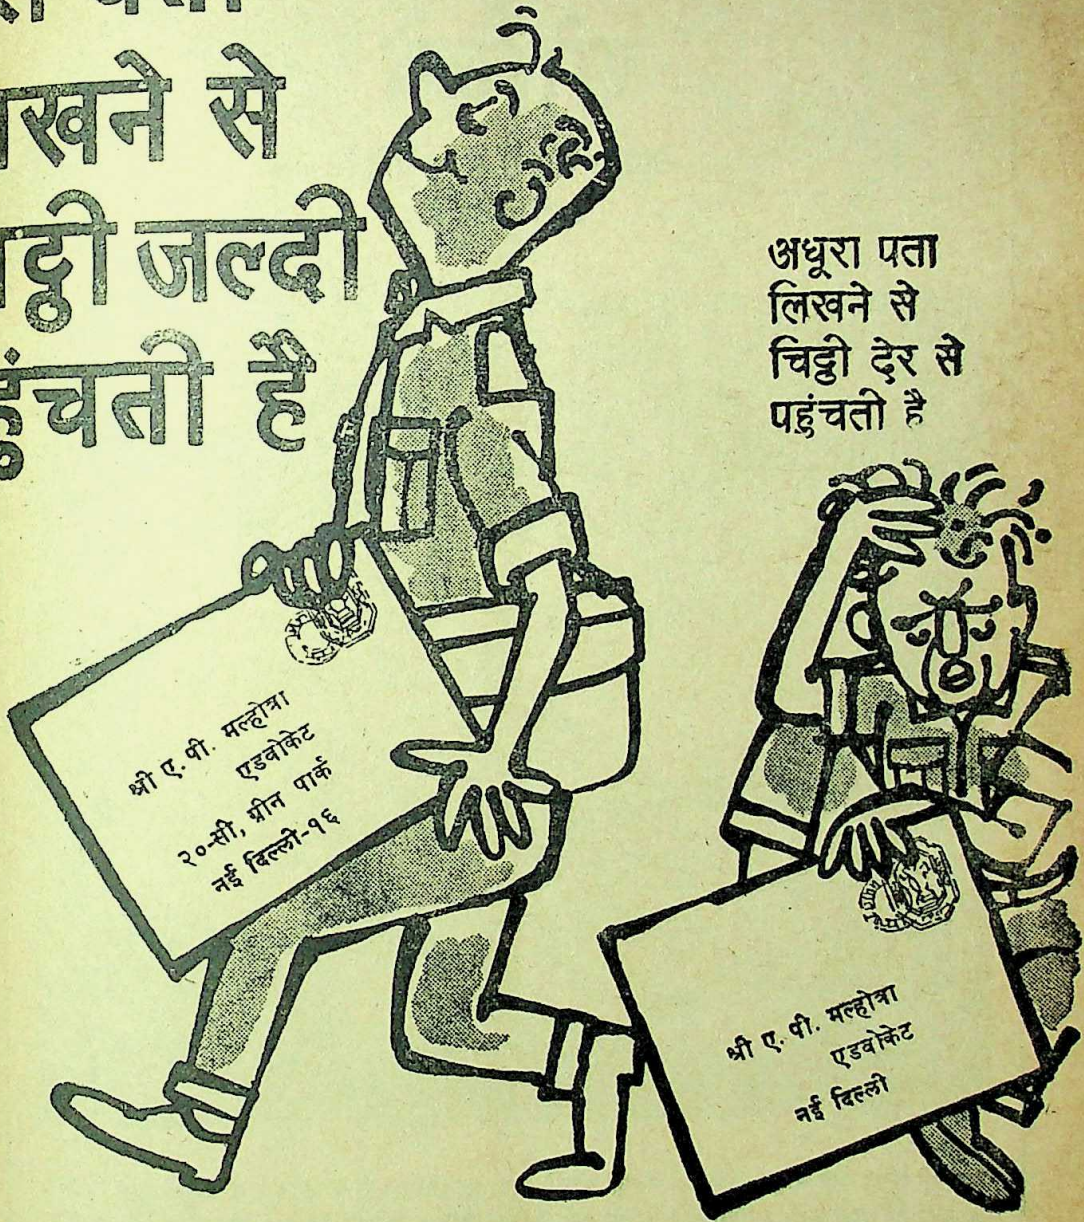 खने से
ट्ठी जल्दी
हुंचती है
अधूरा पता
लिखने से
चिट्ठी देर से
पहुंचती है
श्री ए. पी. मल्होत्रा
एडवोकेट
२०-सी, ग्रीन पार्क
नई दिल्ली-१६
श्री ए. पी. मल्होत्रा
एडवोकेट
नई दिल्ली